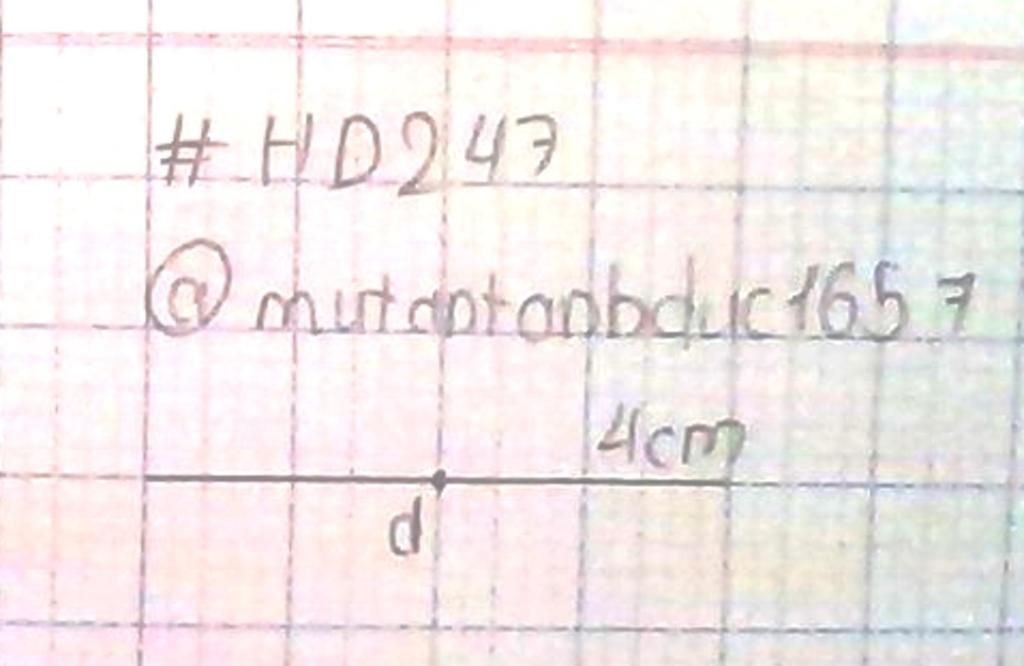 #HD247
@mutantanbduc1657
4cm
d